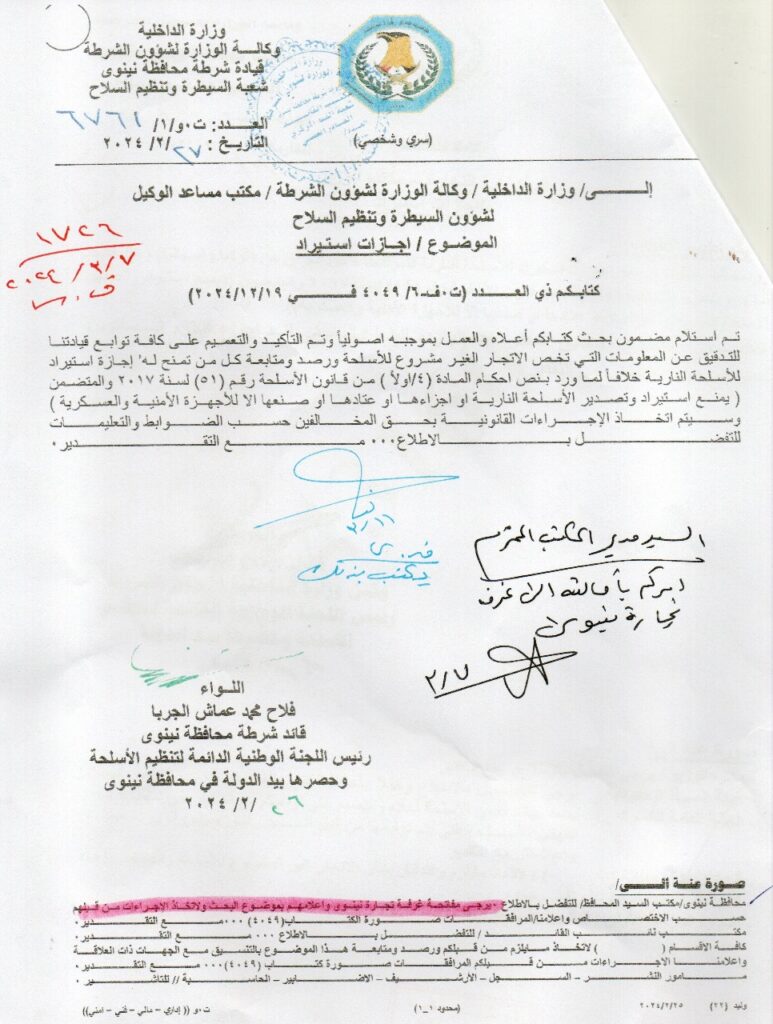 وزارة الداخلية
وكالــة الوزارة لشؤون الشرطة
قيادة شرطة محافظة نينوى
شعبة السيطرة وتنظيم السلاح
العـدد: ت٠و/١/ ٦٧٦١
التاريخ : ٢٧/ ٢/ ٢٠٢٤
(سري وشخصي)
إلـــــى/ وزارة الداخلية / وكالة الوزارة لشؤون الشرطة / مكتب مساعد الوكيل
لشؤون السيطرة وتنظيم السلاح
الموضـوع / اجازات استيراد
١٧٢٦
٢٠٢٤/٣/٧
كتابكـم ذي العـــدد (ت٠ف٦/ ٤٠٤٩ فـــي ٢٠٢٤/١٢/١٩)
تـم استلام مضمون بحث كتابكم أعلاه والعمل بموجبه اصولياً وتـم التأكيـد والتعميم علـى كافـة توابـع قيادتنـا
للتدقيق عن المعلومات التي تخص الاتجار الغير مشروع للأسلحة ورصد ومتابعة كـل مـن تمنـح لـه' إجازة استيراد
للأسلحة النارية خلافاً لما ورد بنص احكام المادة (٤/اولاً ) مـن قـانون الأسلحة رقـم (٥١) لسنة ٢٠١٧ والمتضمن
( يمنـع استيراد وتصديـر الأسـلحة الناريـة او اجزاءهـا او عتادهـا او صـنعها الا للأجهـزة الأمنيـة والعسـكرية )
وسـيتم اتخـاذ الإجـراءات القانونيـة بحـق المخـالفين حسـب الضـوابط والتعليمـات
للتفضـل بـالاطلاع٠٠٠ مـع التقـدير٠
السيد مدير المكتب المحترم
بأحالته الى غرفة
تجارة نينوى
٣/٧
اللـــواء
فلاح محمد عماش الجربا
قائد شرطة محافظة نينوى
رئيس اللجنة الوطنية الدائمة لتنظيم الأسلحة
وحصرها بيد الدولة في محافظة نينوى
٢٦/ ٢/ ٢٠٢٤
صـورة عنـة الـــى/
محافظة نينوى/مكتب السيد المحافظ/ للتفضل بـالاطلاع ٠يرجـى مفاتحة غرفة تجارة نينوى واعلامهـم بموضـوع البحث ولاتخـاذ الاجـراءات مـن قـبلهم
حسـب الاختصـاص واعلامنا/المرافقـات صـورة الكتـاب(٤٠٤٩) ٠٠٠مـع التقـدير٠
مكتـب نائـب القائـد / للتفضـل بـالاطلاع ٠٠٠ مـع التقـدير٠
كافة الاقسام ( ) لاتخـاذ مـايلزم مـن قـبلكم ورصد ومتابعة هـذا الموضـوع بالتنسـيق مـع الجهـات ذات العلاقـة
واعلامنـا الاجـراءات مـن قـبلكم المرافقـات صـورة كتـاب (٤٠٤٩) ٠٠٠ مـع التقـدير٠
مـامور النشـر - السـجل - الأرشـيف - الاضـابير - الحاسـبة // للتاشـير ٠
وليد (٢٢) ٢٠٢٤/٢/٢٥
(محدود ١_١)
ت٠و (( إداري - مالي - فني - امني))